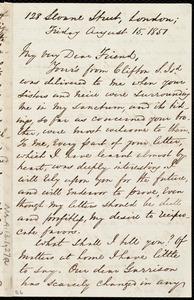 128 Sloane Street, London;
Friday August 15. 1851
My very Dear Friend,
Yours from Clifton S. Y. S.
was delivered to me when your
sisters and niece were surrounding
me in my sanctum, and its hid-
ings, so far as concerned your bro-
ther, were most welcome to them.
To me, every part of your letter,
which I have learned almost by
heart, was deeply interesting. I
will rely upon you for the future,
and will endeavor to prove, even
though my letters should be dull
and profitless, my desire to recipro-
cate favors.
What shall I tell you? Of
matters at home I have little
to say. Our dear Garrison
has scarcely changed in any